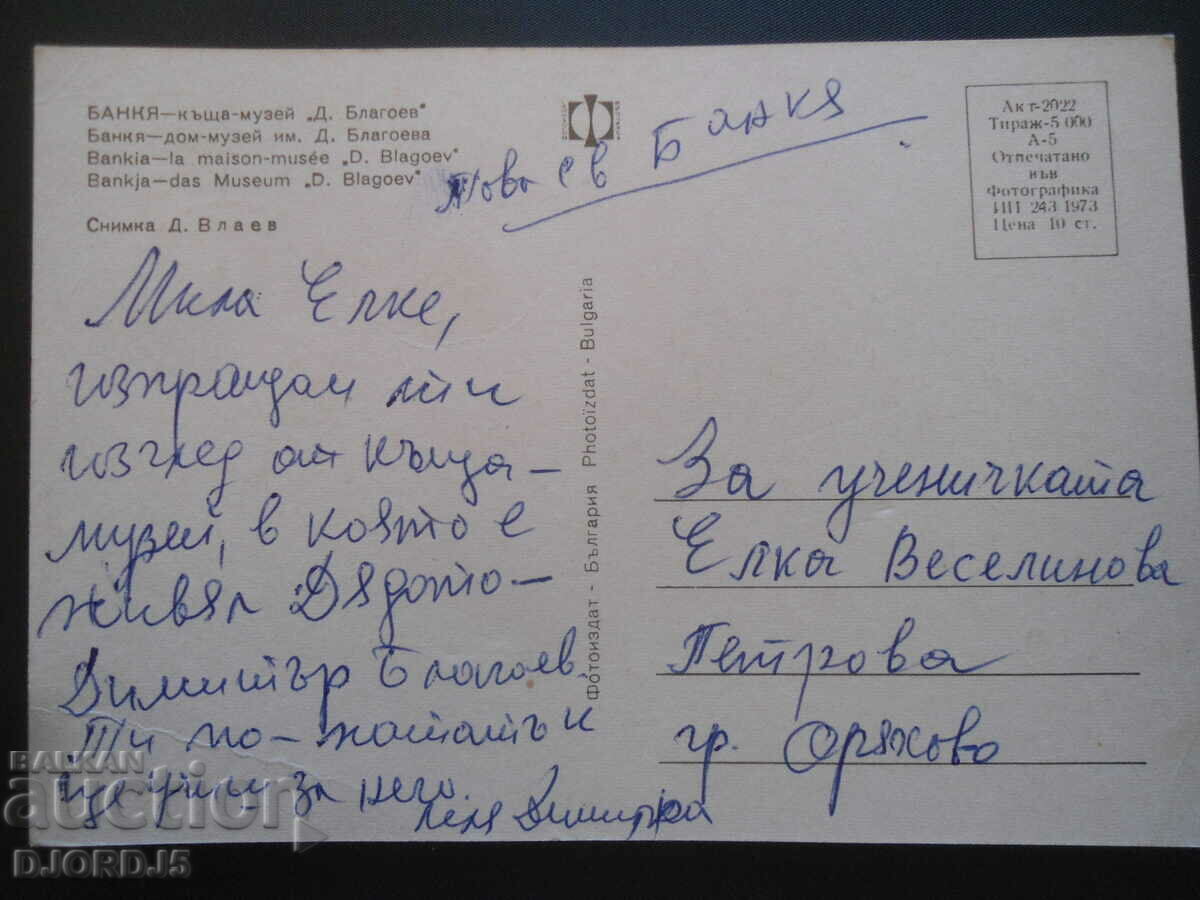 БАНКЯ—къща-музей „Д. Благоев"
Банкя—дом-музей им. Д. Благоева
Bankia—la maison-musée „D. Blagoev"
Bankja—das Museum „D. Blagoev"
Снимка Д. Влаев
Това е в Банкя.
Акт-2022
Тираж-5 000
А-5
Отпечатано
във
Фотографика
ИП 243 1973
Цена 10 ст.
Мила Елке,
изпращам ти
изглед от къща-
музей, в която е
живял Дядото-
Димитър Благоев.
Ти по-нататък
ще учиш за него.
леля Димитра
Фотоиздат - България Photoizdat - Bulgaria
За ученичката
Елка Веселинова
Петрова
гр. Оряхово
BALKAN
auction
DJORDJ5